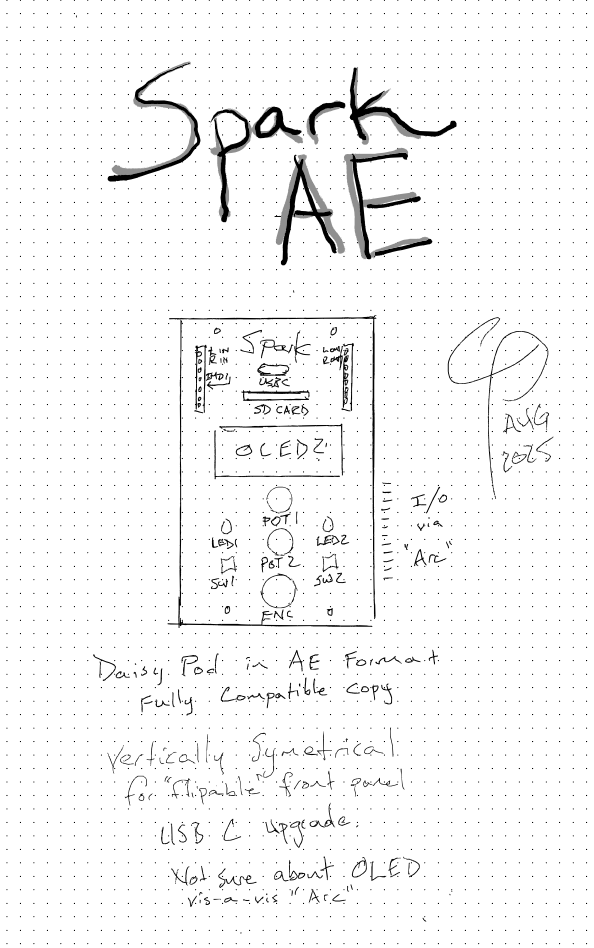 Spark
AE
Spark
L IN
R IN
L OUT
R OUT
USBC
SD CARD
OLED?
POT 1
LED1
LED2
POT 2
SW1
SW2
ENC
I/O
via
"Arc"
AUG
2025
Daisy Pod in AE Format
Fully Compatible copy
Vertically Symetrical
for "flipable" front panel
USB C upgrade.
Not sure about OLED
vis-a-vis "Arc"